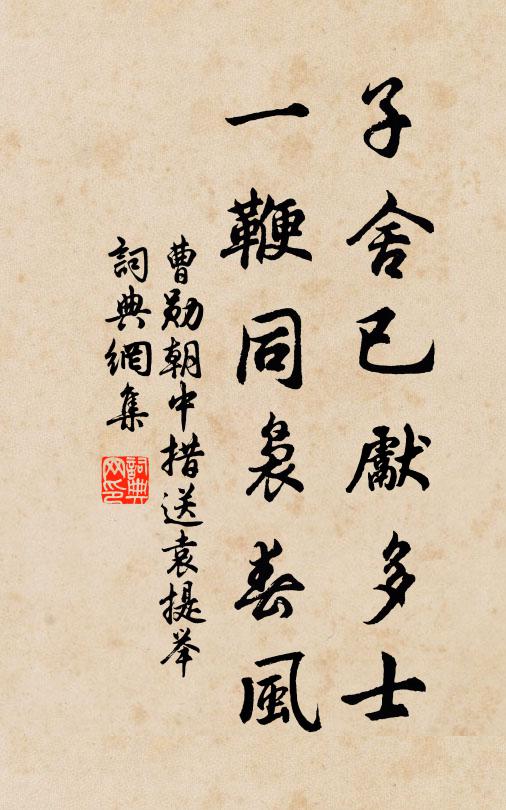 子舍已献多士
一鞭同裊春風
曹勛朝中措送袁提举
詞典網集
詞典网印